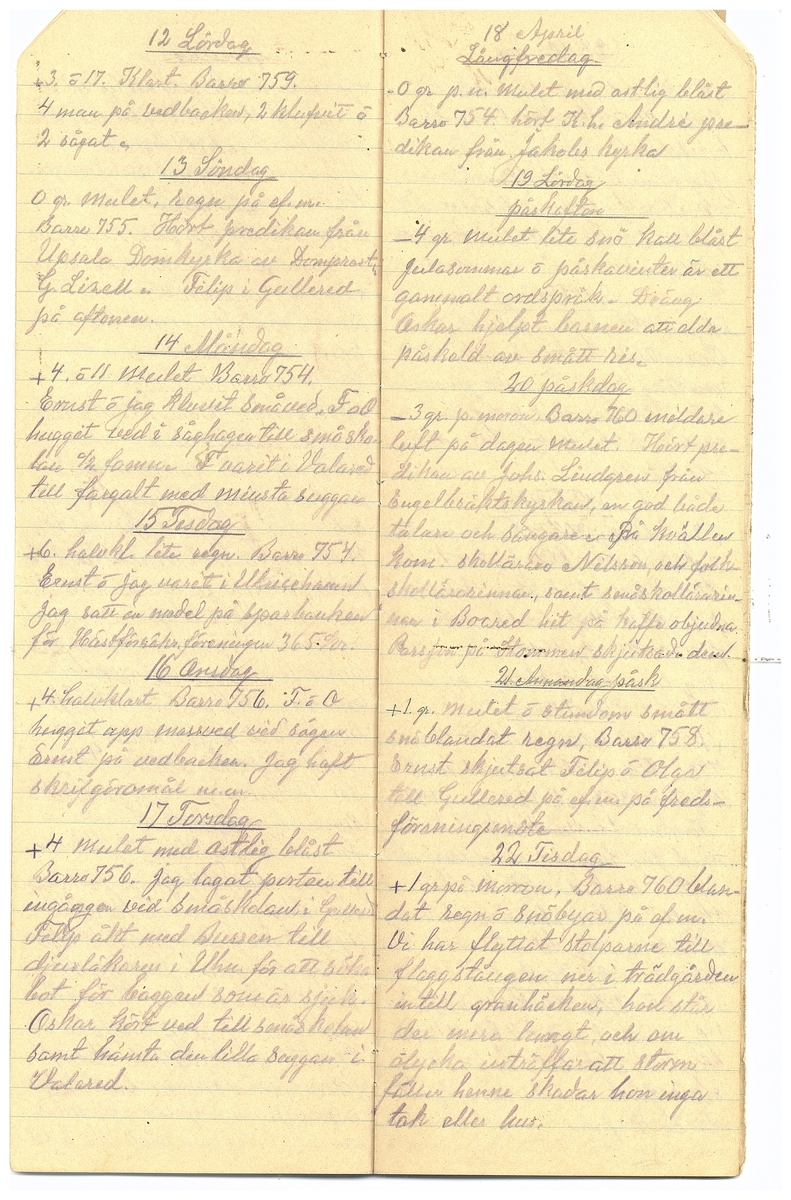 12 Lördag
+3 ö 17. Klart. Barro 759.
4 man på vedbacken, 2 klufvit ö
2 sågat.
13 Söndag
0 gr. Mulet, regn på ef.m.
Barro 755. Hört predikan från
Upsala Domkyrka av Domprost
G. Lizell. Filip i Gullered
på aftonen.
14 Måndag
+4. ö 11 Mulet Barro 754.
Ernst ö jag kluvit småved. F ö O
huggit ved i såghagen till småsko-
lan famn. F varit i Valared
till fargalt med minsta suggan
15 Tisdag
+6. halvkl. lite regn. Barro 754.
Ernst ö jag varet i Ulricehamn
Jag satt in medel på sparbanken
för Hästförsäkr. föreningen 365 kr.
16 Onsdag
+4. halvklart Barro 756. F. ö O
huggit upp ved vid sågen
Ernst på vedbacken. Jag haft
skrifgöromål m.m.
17 Torsdag
+4 Mulet med ostlig blåst
Barro 756. Jag lagat porten till
ingången vid småskolan i Gullered
Filip åkt med Bussen till
djurläkaren i Uhn. för att söka
bot för baggen som är sjuk.
Oskar kört ved till småskolan
samt hämta den lilla suggan i
Valared.
18 April
Långfredag
-0 gr p. m. Mulet med ostlig blåst
Barro 754. hört K.h. André pre-
dikan från Jakobs kyrka
19 Lördag
påskafton
-4 gr. Mulet lite snö kall blåst
Julasommar ö påskavinter är ett
gammalt ordspråk. Dräng
Oskar hjelpt barnen att elda
påskald av smått ris.
20 påskdag
-3 gr. p. moron. Barro 760 mildare
luft på dagen mulet. Hört pre-
dikan av Johs. Lindgren från
Engelbräktskyrkan, en god både
talare och sångare. På kvällen
kom. skollärare Nilsson, och folk-
skollärarinnan, samt småskollärarin-
nan i Boared hit på kaffe objudna
Persson på Stommen skjutsade dem.
21 Annandag påsk
+1. gr. Mulet ö stundom smått
snöblandat regn, Barro 758.
Ernst skjutsat Filip ö Olga
till Gullered på ef.m. på freds-
föreningsmöte
22 Tisdag
+1 gr på morron, Barro 760 blan-
dat regn ö snöbyar på ef.m.
Vi har flyttat stolparne till
flaggstången ner i trädgården
intill granhäcken, hon står
der mera lungt, och om
olycka inträffar att storm
fäller henne skadar hon inga
tak eller hus.